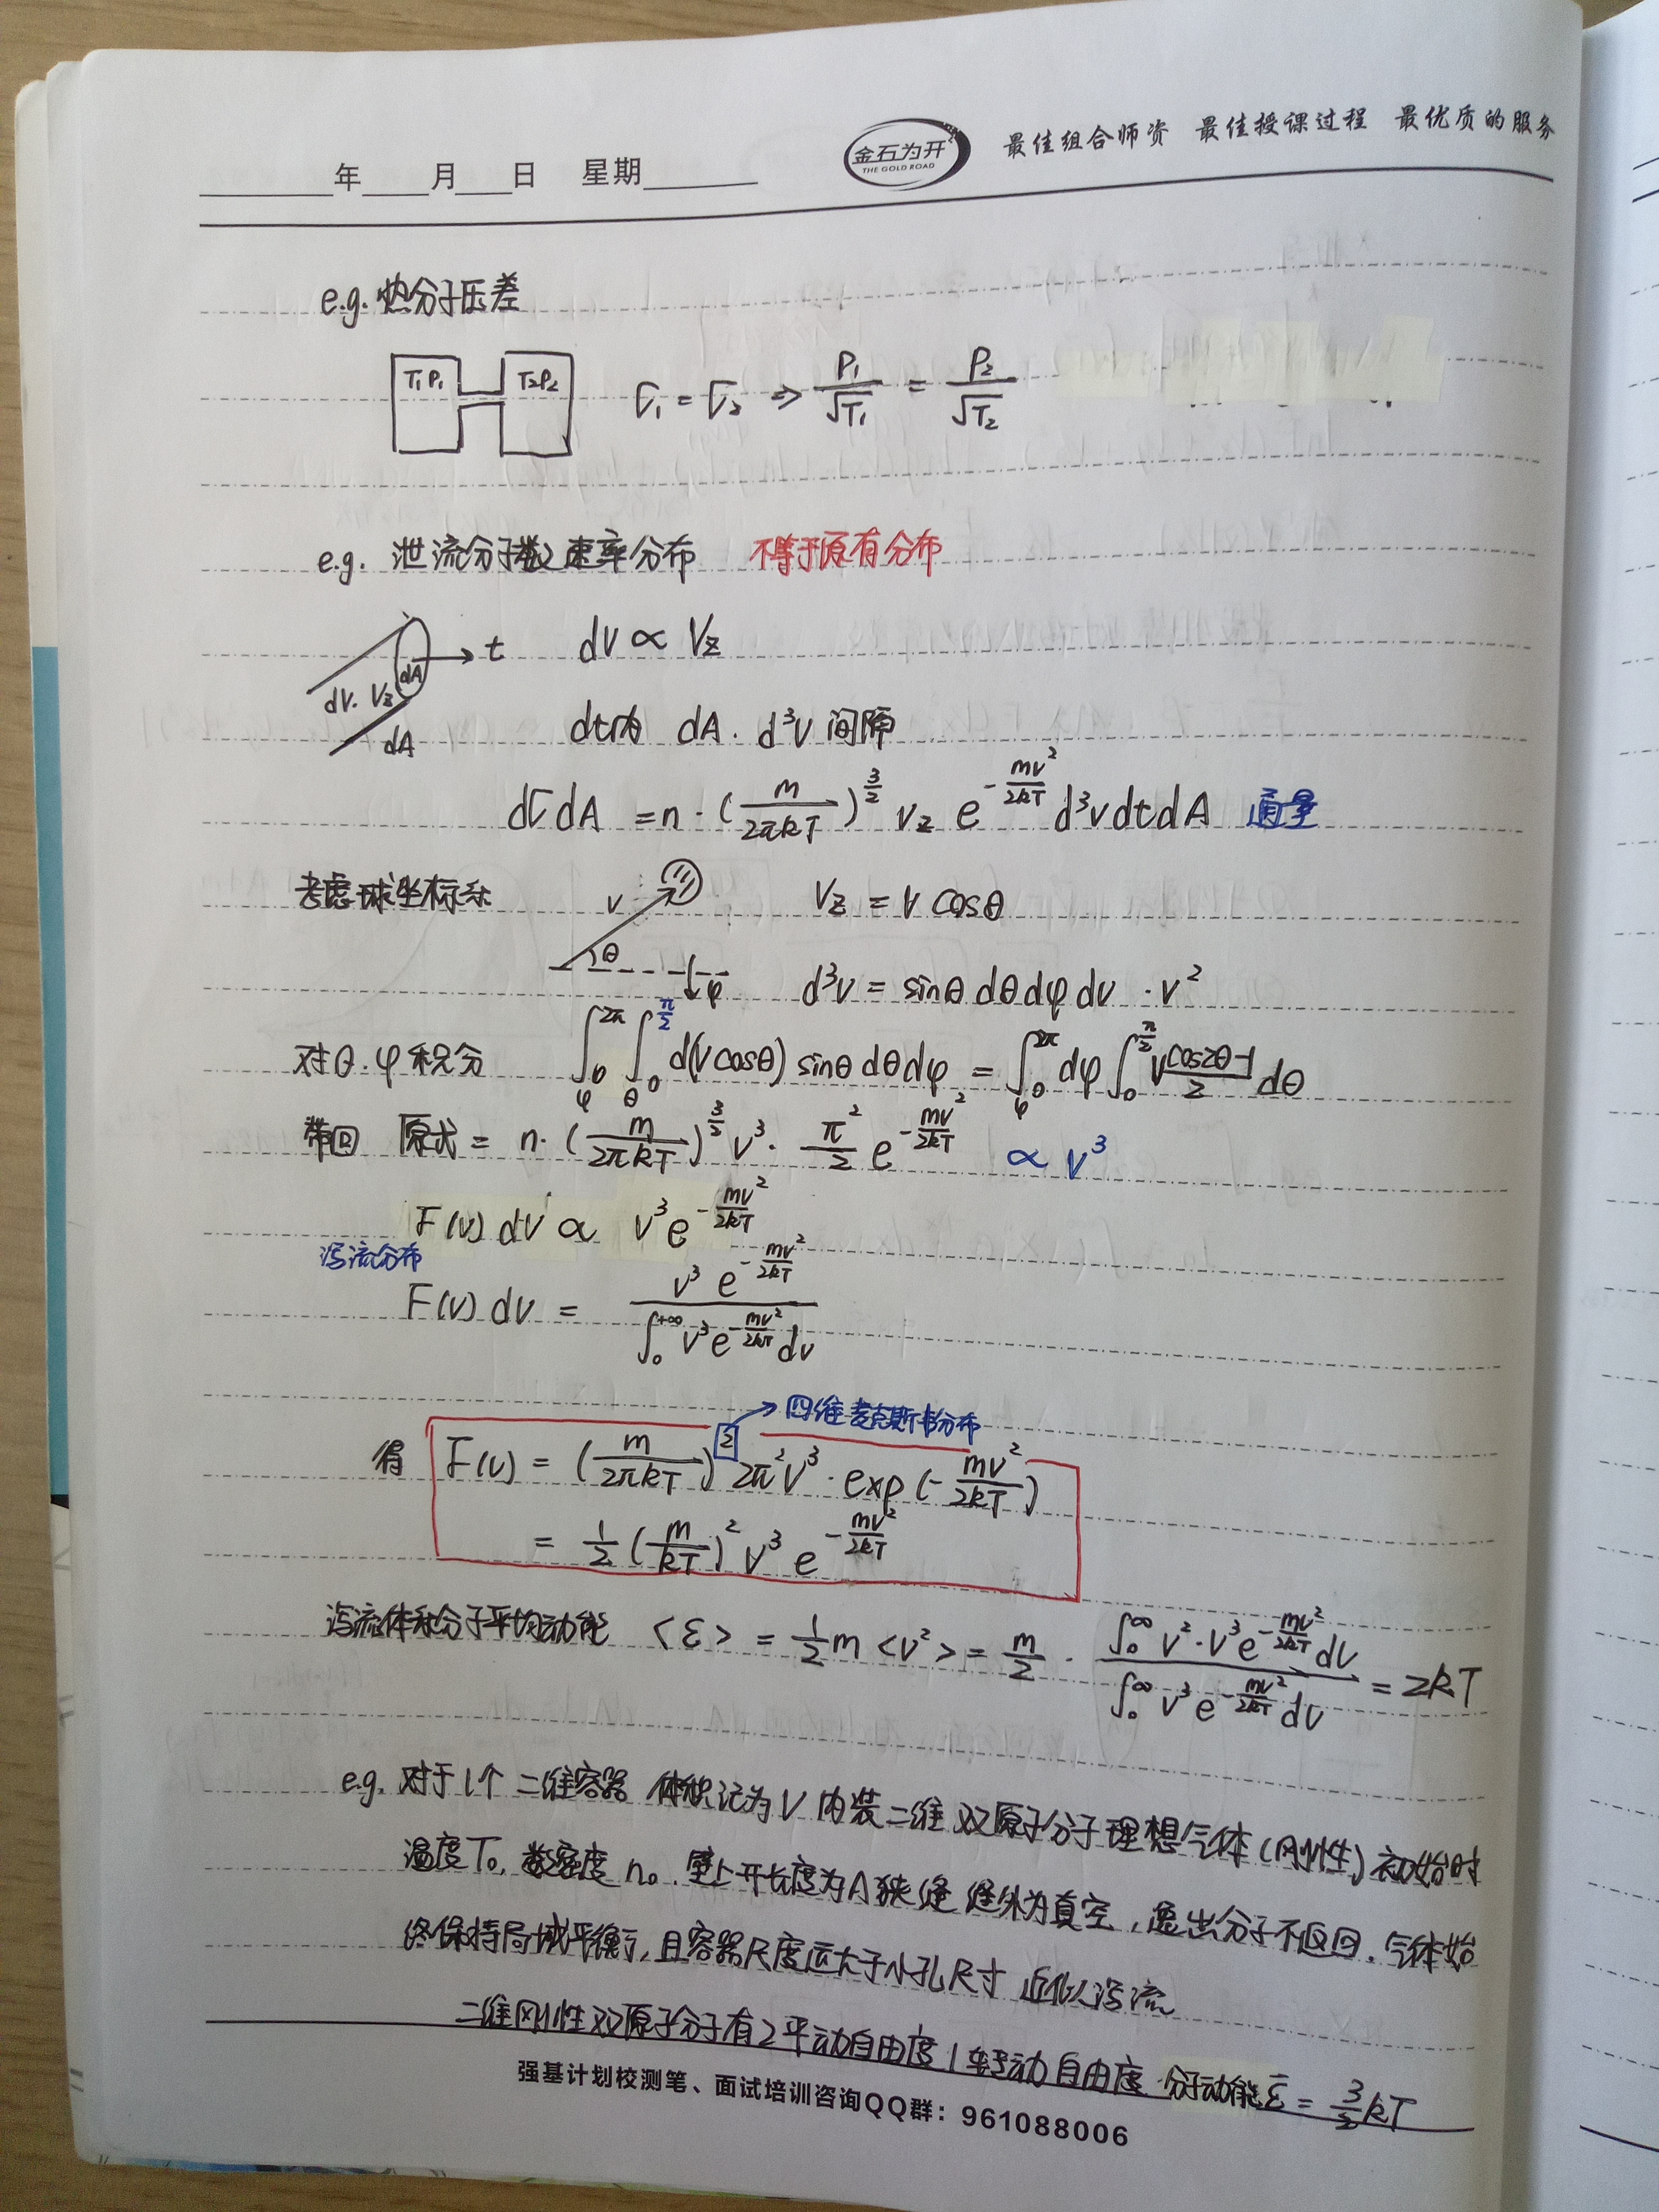 ____年____月____日 星期____ 金石为开 THE GOLD ROAD 最佳组合师资 最佳授课过程 最优质的服务
e.g. 热分子压差
T₁P₁ T₂P₂ Γ₁ = Γ₂ ⇒ P₁/√T₁ = P₂/√T₂
e.g. 泄流分子数速率分布 不等于原有分布
dA t dV ∝ Vz
dV. Vz
dA dt内 dA . d³v 间隔
dΓdA = n·(m/2πkT)^(3/2) Vz e^(-mv²/2kT) d³v dt dA 通量
考虑球坐标系 v θ φ Vz = v cosθ
d³v = sinθ dθ dφ dv · v²
对θ.φ积分 ∫₀^2π ∫₀^(π/2) d(v cosθ) sinθ dθ dφ = ∫₀^2π dφ ∫₀^(π/2) v (cos2θ-1)/2 dθ
带回 原式 = n·(m/2πkT)^(3/2) v³ · π²/2 e^(-mv²/2kT) ∝ v³
F(v) dv ∝ v³ e^(-mv²/2kT)
泻流分布
F(v) dv = v³ e^(-mv²/2kT) / ∫₀^+∞ v³ e^(-mv²/2kT) dv
四维麦克斯韦分布
得 F(v) = (m/2πkT)² 2π² v³ · exp(-mv²/2kT)
= 1/2 (m/kT)² v³ e^(-mv²/2kT)
泻流体系分子平均动能 <ε> = 1/2 m <v²> = m/2 · ∫₀^∞ v²·v³ e^(-mv²/2kT) dv / ∫₀^∞ v³ e^(-mv²/2kT) dv = 2kT
e.g. 对于1个 二维容器 体积记为V 内装二维 双原子分子理想气体(刚性) 初始时
温度T₀, 数密度 n₀. 壁上开长度为A狭缝 缝外为真空, 逸出分子不返回. 气体始
终保持局域平衡, 且容器尺度远大于小孔尺寸 近似泻流
二维刚性双原子分子有2平动自由度1转动自由度 分子动能ε̄ = 3/2 kT
强基计划校测笔、面试培训咨询QQ群：961088006